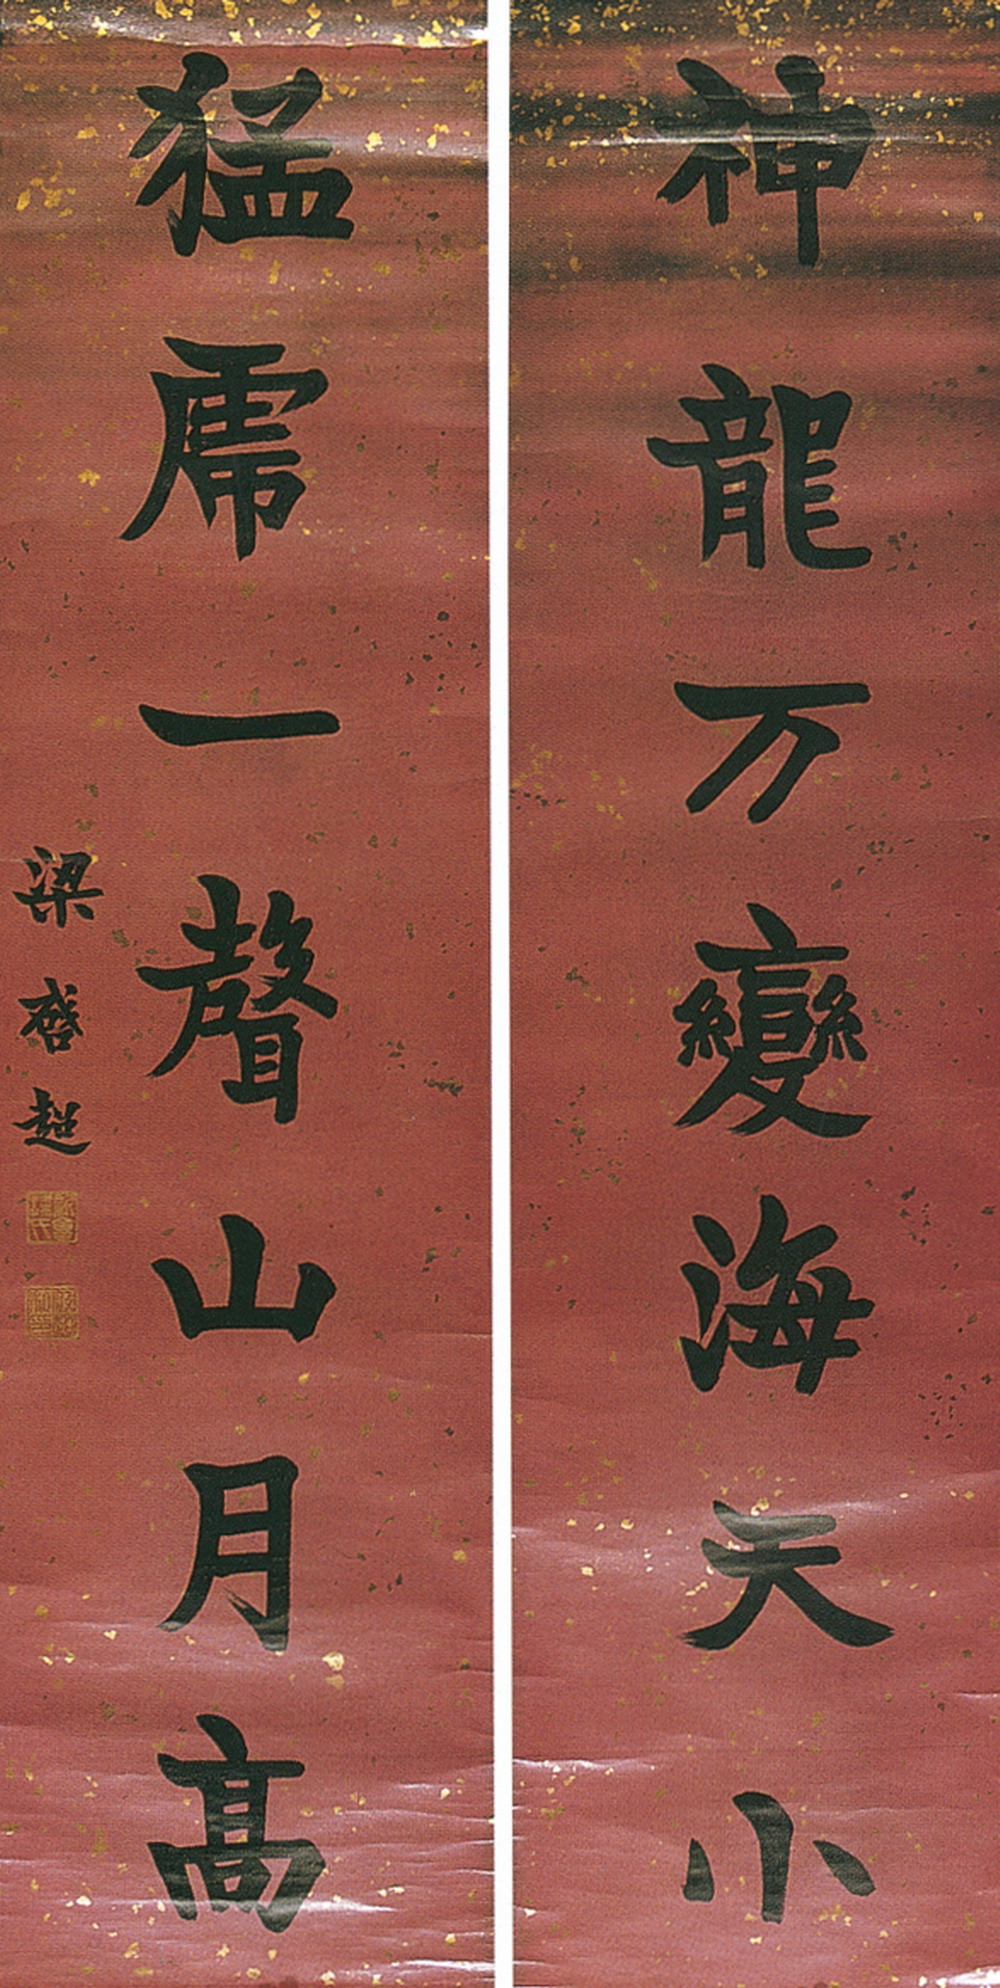 神龍万變海天小
猛虎一聲山月高
梁啓超